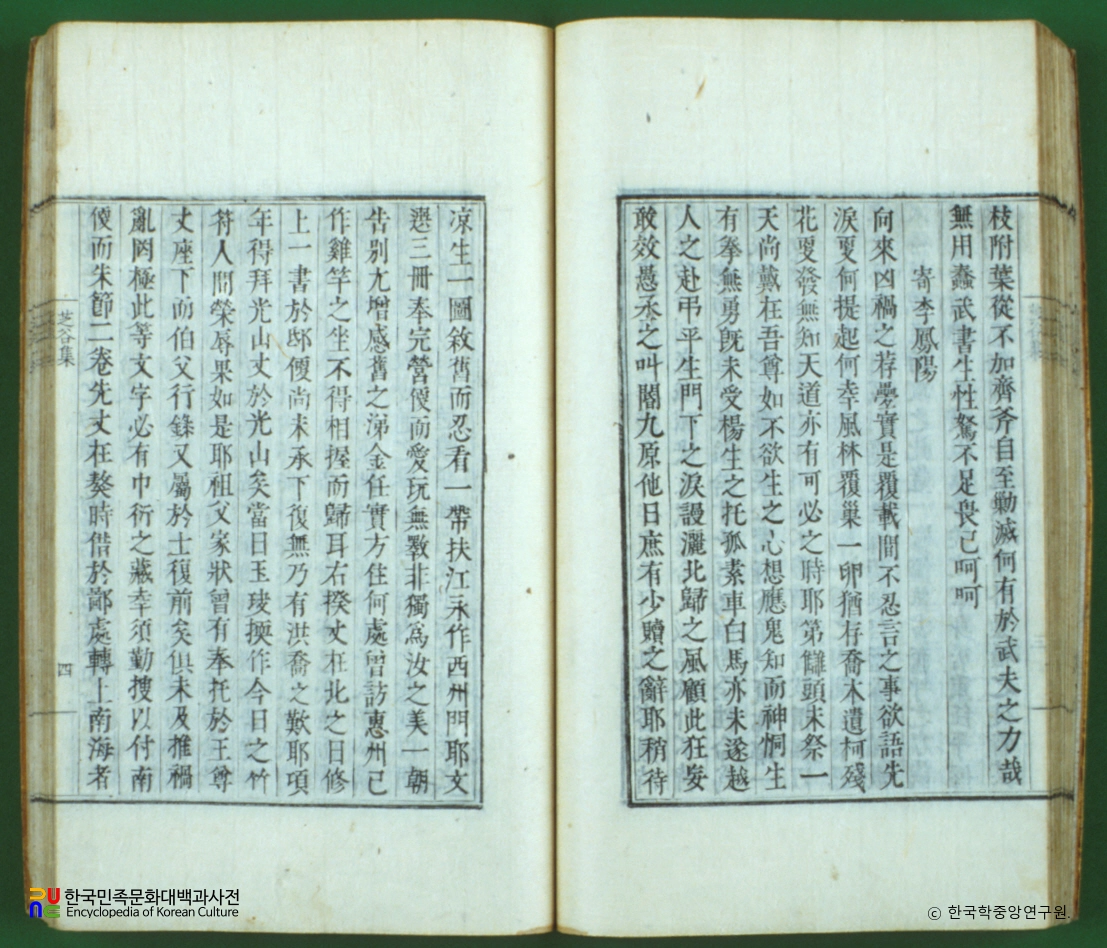 枝附葉從不加齊斧自至勦滅何有於武夫之力哉
無用蠢武書生性駑不足畏已呵呵
寄李鳳陽
向來凶禍之荐疊實是覆載間不忍言之事欲語先
淚更何提起何幸風林覆巢一卵猶存喬木遺柯殘
花更發無知天道亦有可必之時耶第讎頭未祭一
天尚戴在吾尊如不欲生之心想應鬼知而神恫生
有拳無勇旣未受楊生之托孤素車白馬亦未遂越
人之赴弔平生門下之淚謾灑北歸之風顧此狂妄
敢效愚忝之叫閤九原他日庶有少贖之辭耶稍待
凉生一圖敘舊而忍看一帶扶江永作西州門耶文
選三冊奉完營便而愛玩無斁非獨爲汝之美一朝
告別尤增感舊之涕金任實方住何處曾訪惠州已
作雞竿之坐不得相握而歸耳右揆丈在北之日修
上一書於邸便尚未承下復無乃有洪喬之歎耶項
年得拜光山丈於光山矣當日玉堎換作今日之竹
符人間榮辱果如是耶祖父家狀曾有奉托於王尊
丈座下而伯父行錄又屬於士復前矣俱未及推禍
亂罔極此等文字必有巾衍之藏幸須勤搜以付南
便而朱節二卷先丈在嶅時借於鄙處轉上南海者
芝谷集
四
한국민족문화대백과사전
Encyclopedia of Korean Culture
ⓒ 한국학중앙연구원.